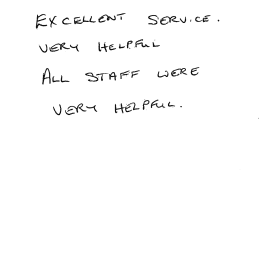 EXCELLENT SERVICE.
VERY HELPFUL
ALL STAFF WERE
VERY HELPFUL.